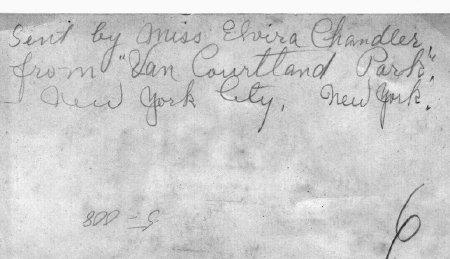 Sent by Miss Elvira Chandler
from "Van Courtland Park",
New York City, New York.
5-008
6